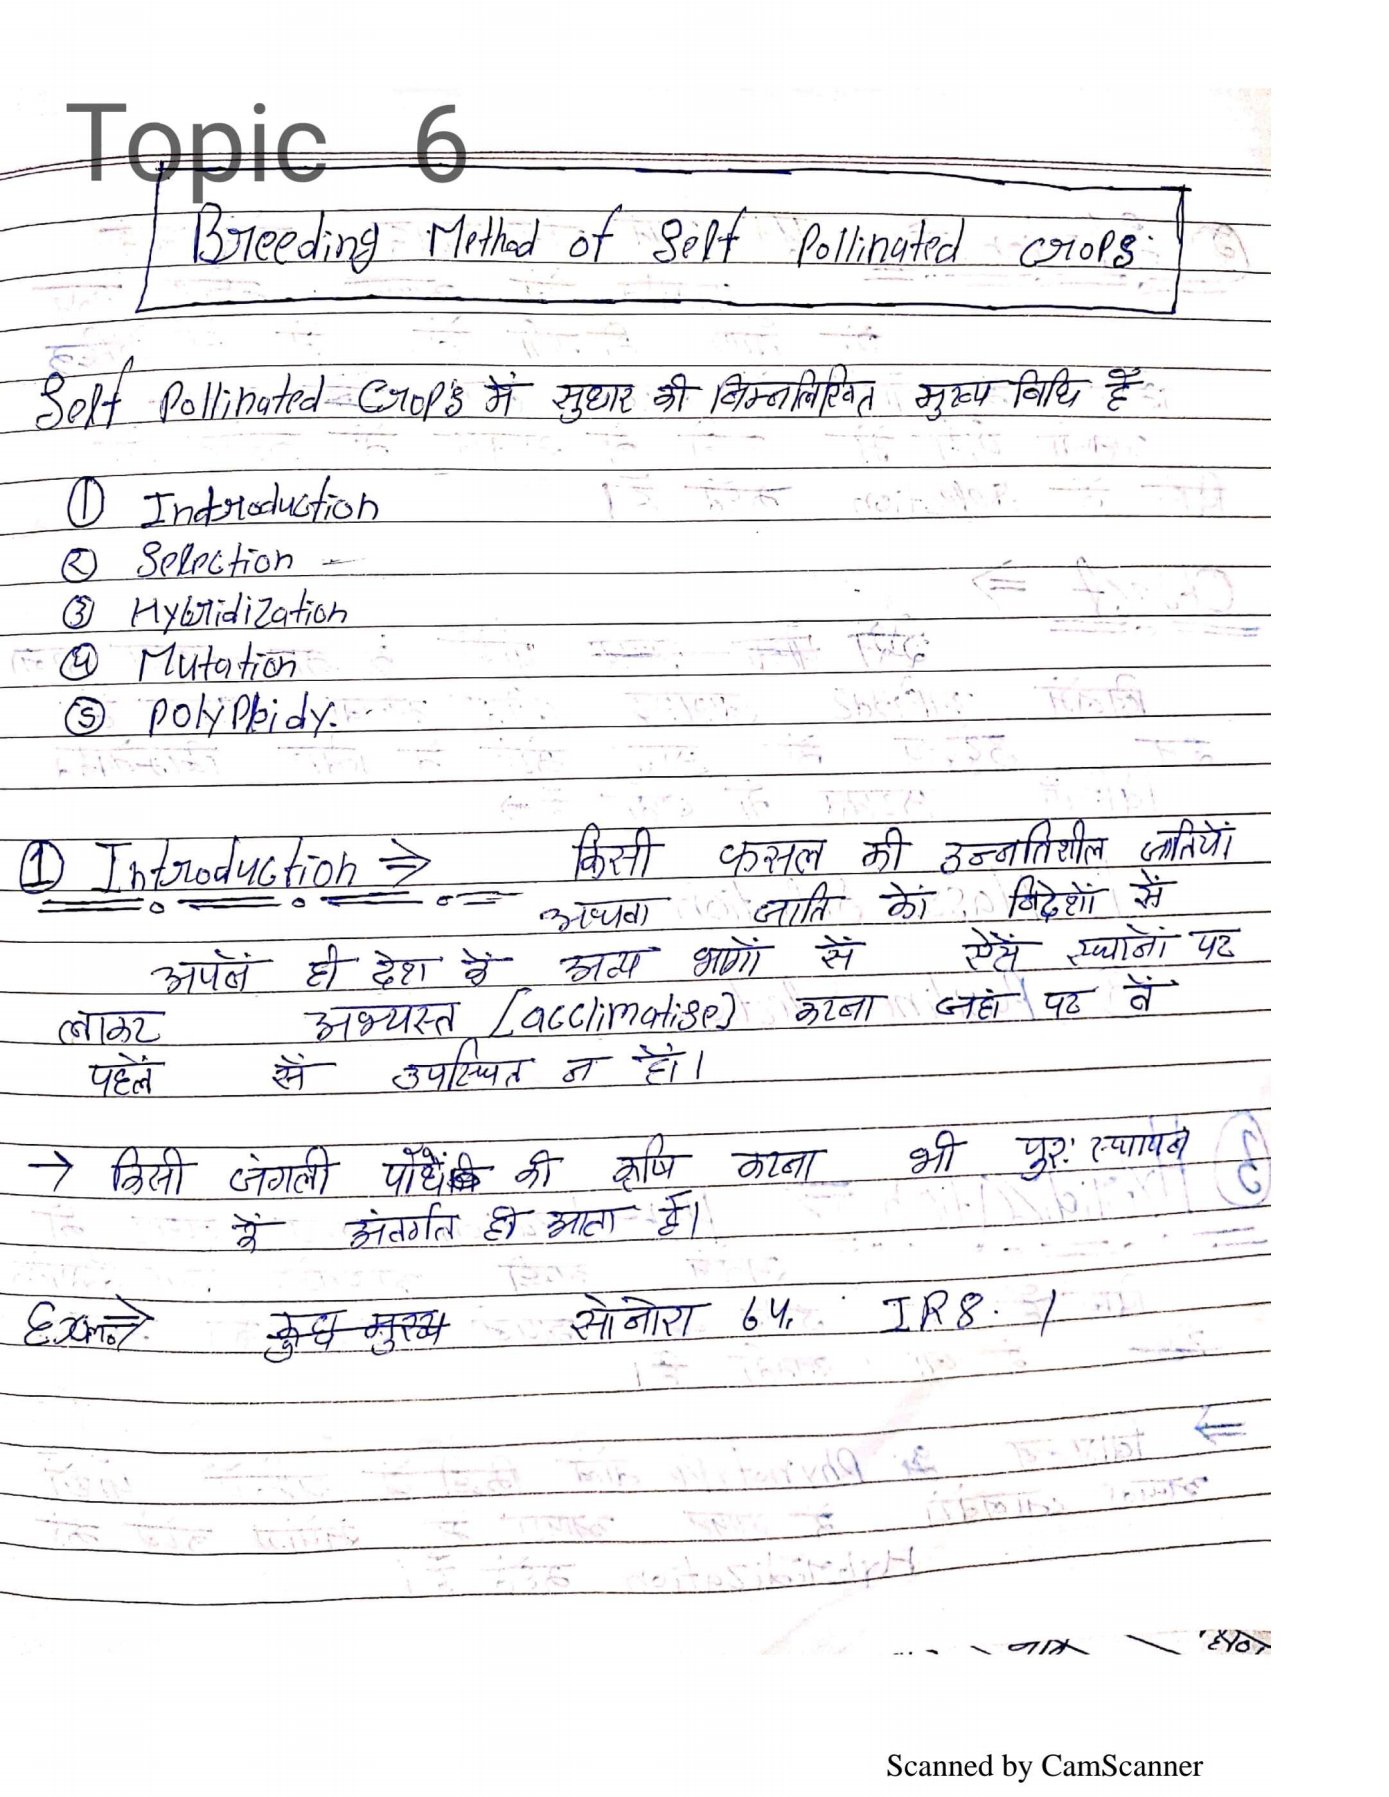 Topic 6
Breeding Method of Self Pollinated crops.
Self Pollinated Crop's में सुधार की निम्नलिखित मुख्य विधि है
① Introduction
② Selection
③ Hybridization
④ Mutation
⑤ Polyploidy.
① Introduction ⇒ किसी फसल की उन्नतिशील जातियों
अथवा जाति कों विदेशों सें
अपनें ही देश कें अन्य भागों सें ऐसें स्थानों पर
लाकर अभ्यस्त [acclimatise] करना जहां पर वें
पहलें सें उपस्थित न हों।
→ किसी जंगली पौधें की कृषि करना भी पुरः स्थापन
कें अंतर्गत ही आता हैं।
Exm.⇒ कुछ मुख्य सोनोरा 64, IR8. /
Scanned by CamScanner